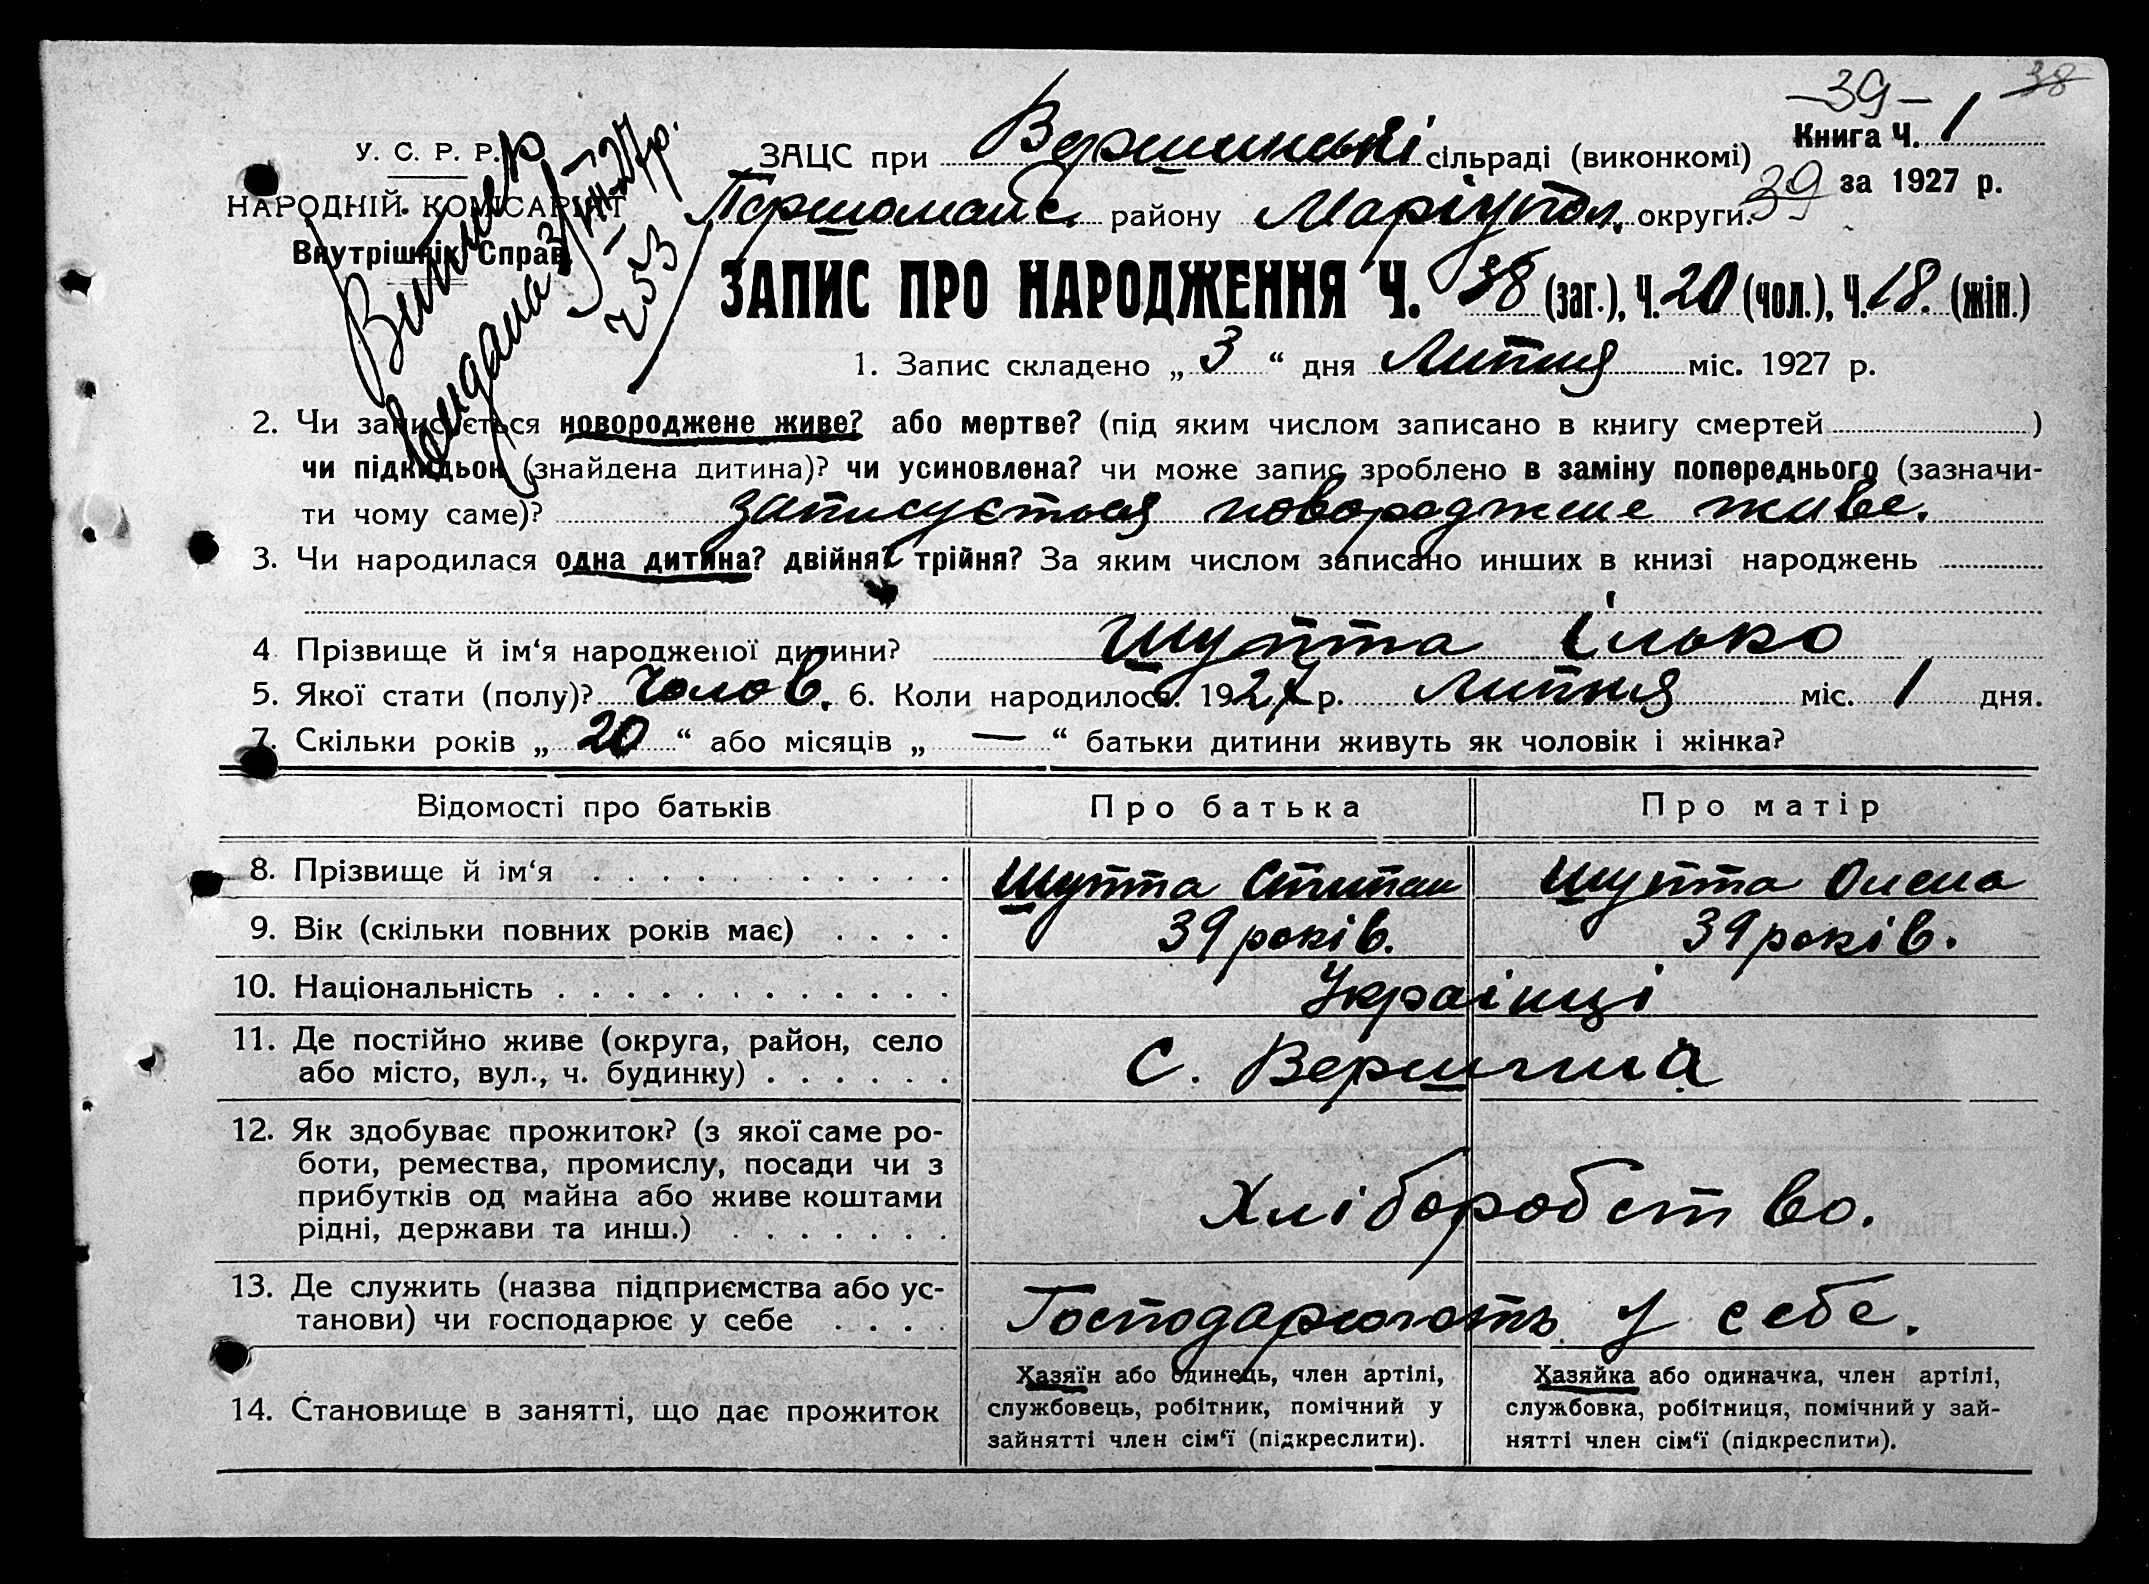 -39- 38
У. С. Р. Р.
НАРОДНІЙ КОМІСАРІЯТ
Внутрішніх Справ
253
ЗАЦС при Вершинські сільраді (виконкомі)
Книга Ч. 1
39 за 1927 р.
Першомайс. району Маріупол. округи.
ЗАПИС ПРО НАРОДЖЕННЯ Ч. 38 (заг.), Ч. 20 (чол.), Ч. 18. (жін.)
1. Запис складено „ 3 “ дня Липня міс. 1927 р.
2. Чи записується новороджене живе? або мертве? (під яким числом записано в книгу смертей )
чи підкидьок (знайдена дитина)? чи усиновлена? чи може запис зроблено в заміну попереднього (зазначи-
ти чому саме)? записується новороджене живе.
3. Чи народилася одна дитина? двійня? трійня? За яким числом записано инших в книзі народжень
4. Прізвище й ім‘я народженої дитини? Шупта Ілько
5. Якої стати (полу)? Чолов. 6. Коли народилося. 1927 р. Липня міс. 1 дня.
7. Скільки років „ 20 “ або місяців „ — “ батьки дитини живуть як чоловік і жінка?
Відомості про батьків Про батька Про матір
8. Прізвище й ім‘я Шупта Степан Шупта Олена
9. Вік (скільки повних років має) 39 років. 39 років.
10. Національність Українці
11. Де постійно живе (округа, район, село
або місто, вул., ч. будинку) С. Вершина
12. Як здобуває прожиток? (з якої саме ро-
боти, ремества, промислу, посади чи з
прибутків од майна або живе коштами
рідні, держави та инш.) Хліборобство.
13. Де служить (назва підприємства або ус-
танови) чи господарює у себе Господарюють у себе.
14. Становище в занятті, що дає прожиток
Хазяїн або одинець, член артілі,
службовець, робітник, помічний у
зайнятті член сім‘ї (підкреслити).
Хазяйка або одиначка, член артілі,
службовка, робітниця, помічний у зай-
нятті член сім‘ї (підкреслити).